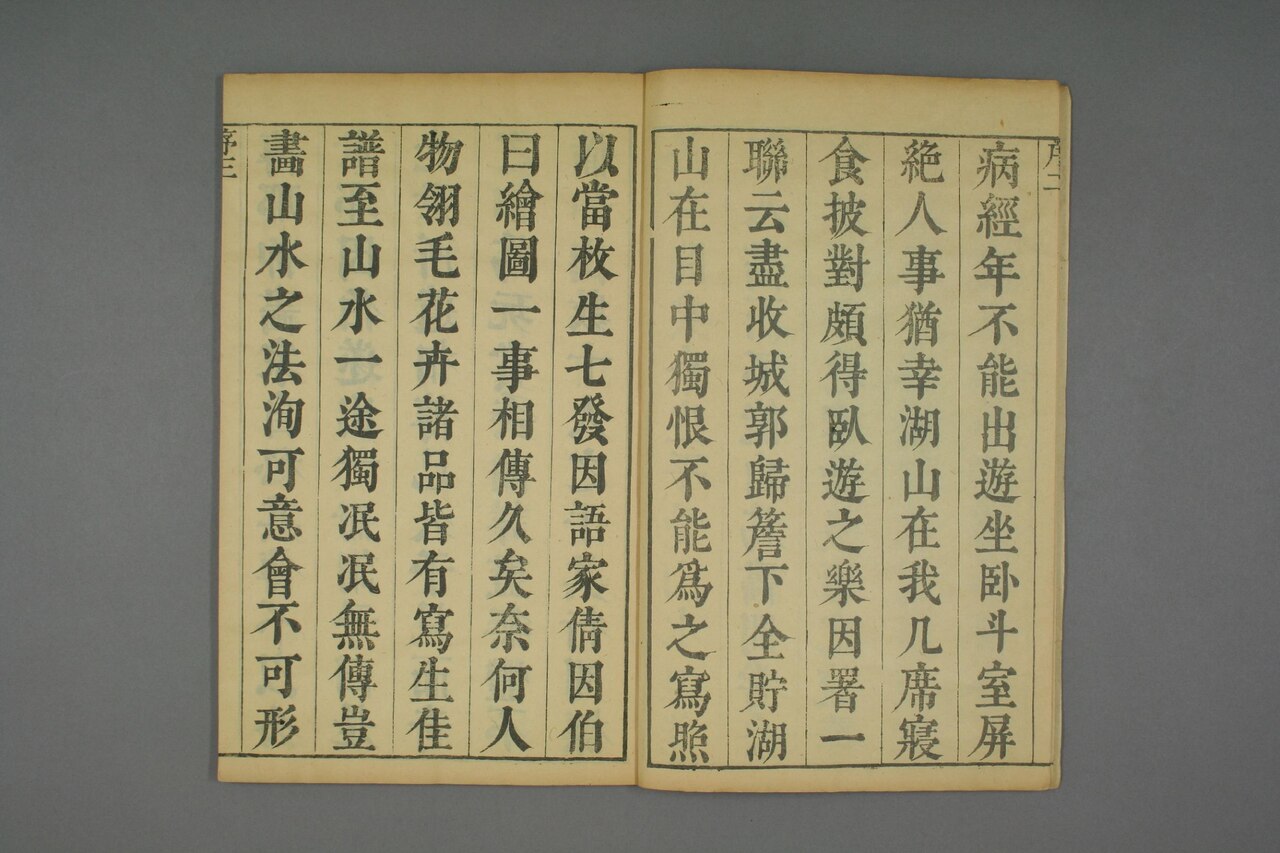 序二
病經年不能出遊坐卧斗室屏
絶人事猶幸湖山在我几席寢
食披對頗得臥遊之樂因署一
聯云盡收城郭歸簷下全貯湖
山在目中獨恨不能爲之寫照
以當枚生七發因語家倩因伯
曰繪圖一事相傳久矣奈何人
物翎毛花卉諸品皆有寫生佳
譜至山水一途獨泯泯無傳豈
畵山水之法洵可意會不可形
序三